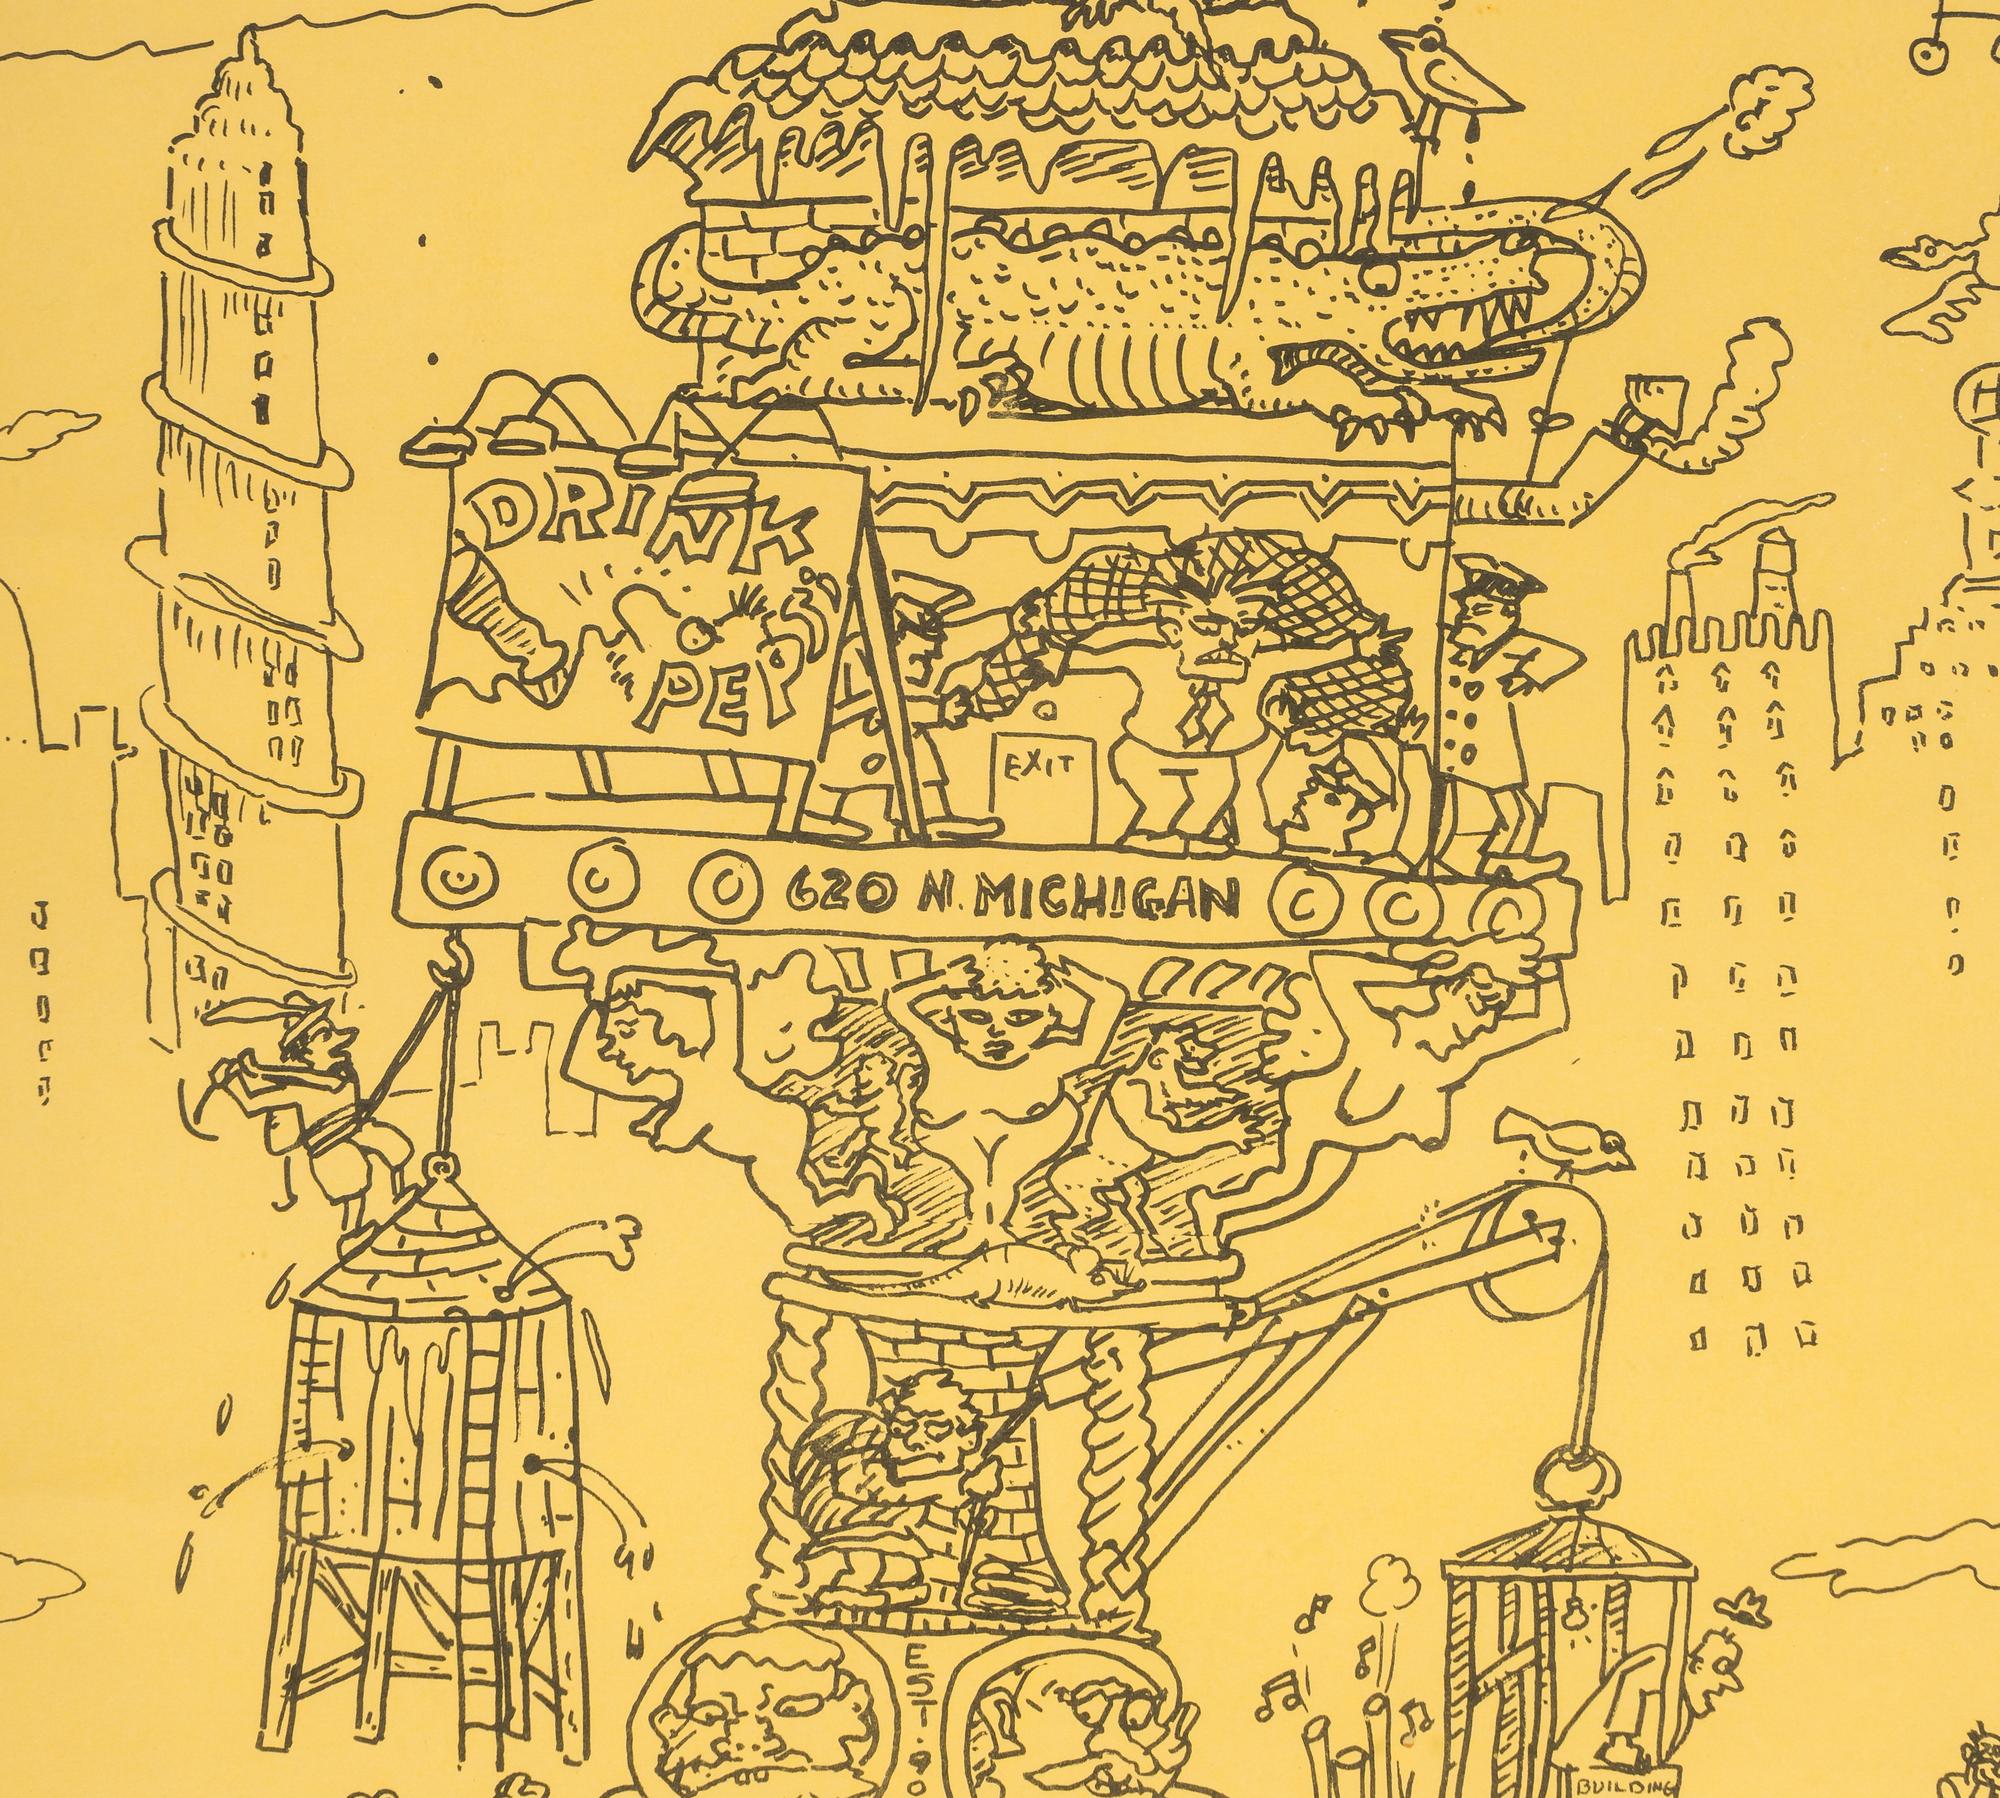 DRINK
PEP
EXIT
620 N. MICHIGAN
EST. 90
BUILDING